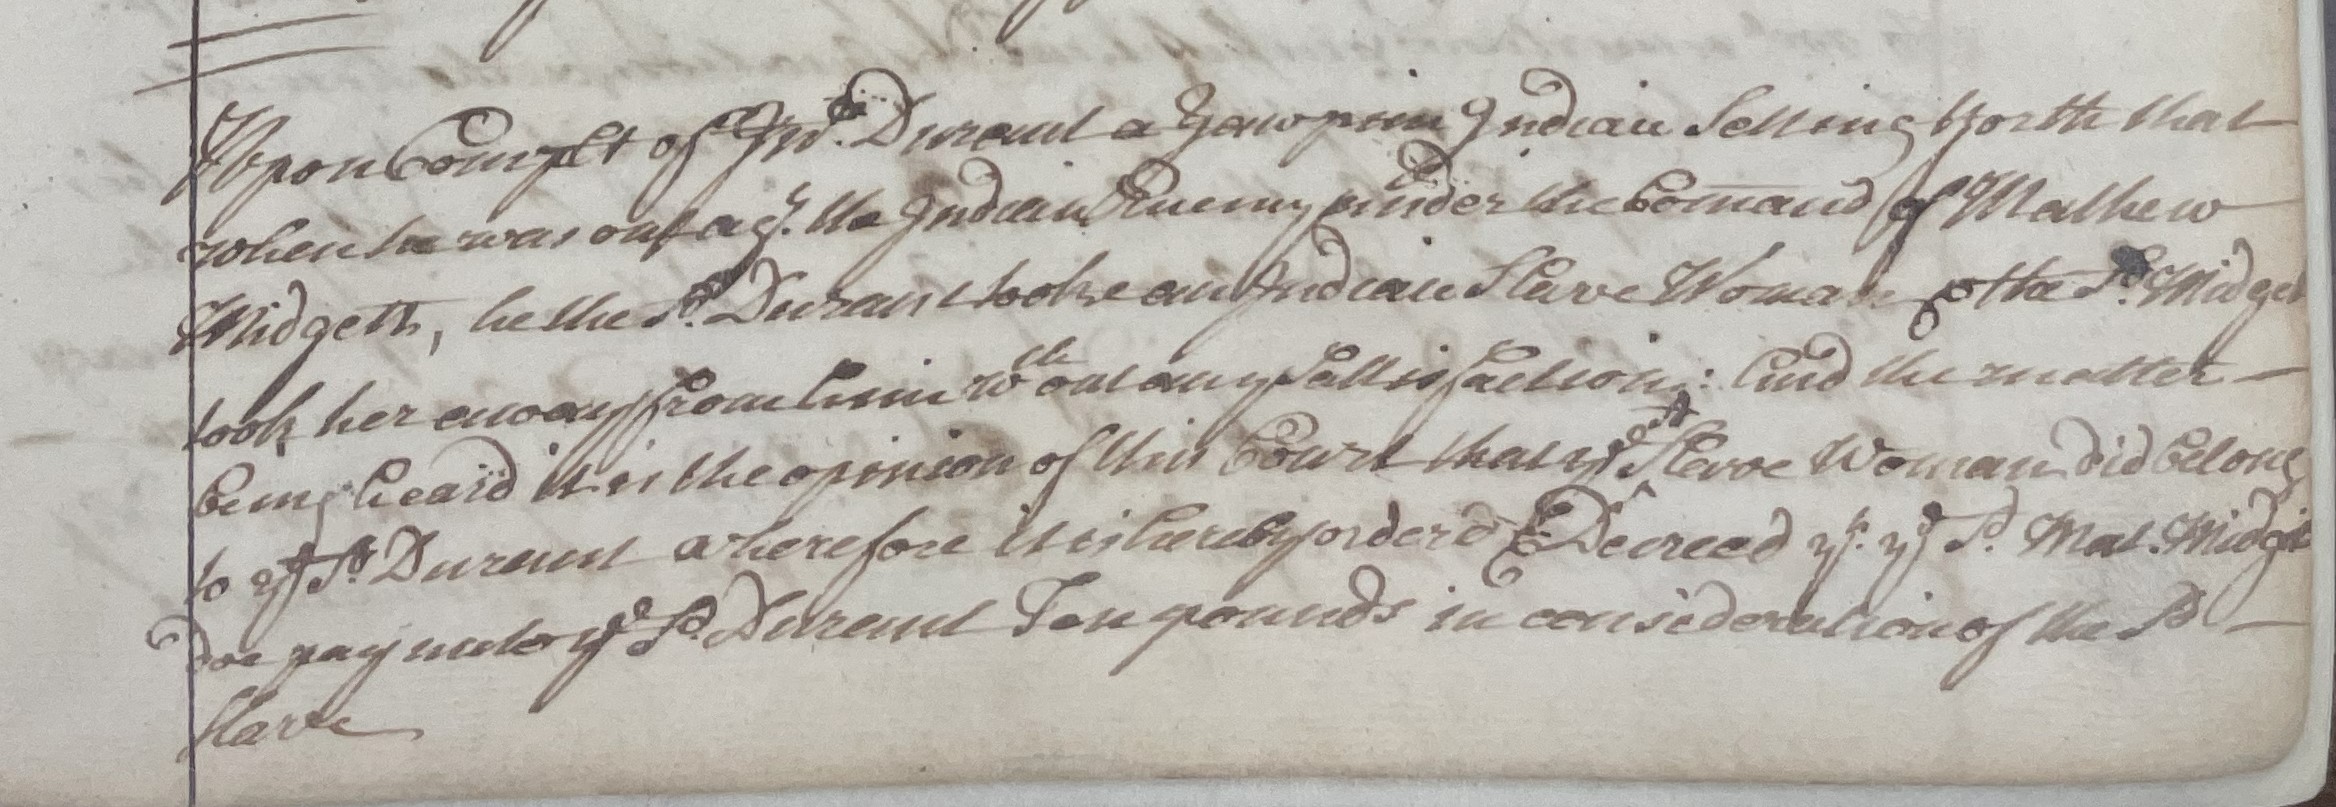 Upon Complt of Jno. Durant a Yawpim Indian Setting fforth that
when he was out agt. the Indian Enemy under the Comand of Mathew
Midgett, he the Sd. Durant tooke an Indian Slave Woman & the Sd. Midget
took her away from him wthout any Sattisfaction: And the matter
being heard it is the opinion of this Court that ye Sd Slave Woman did belong
to ye Sd. Durant wherefore it is hereby order'd & Decreed yt. ye Sd. Mat. Midget
doe pay unto ye Sd. Durant Ten pounds in consideration of the Sd
Slave